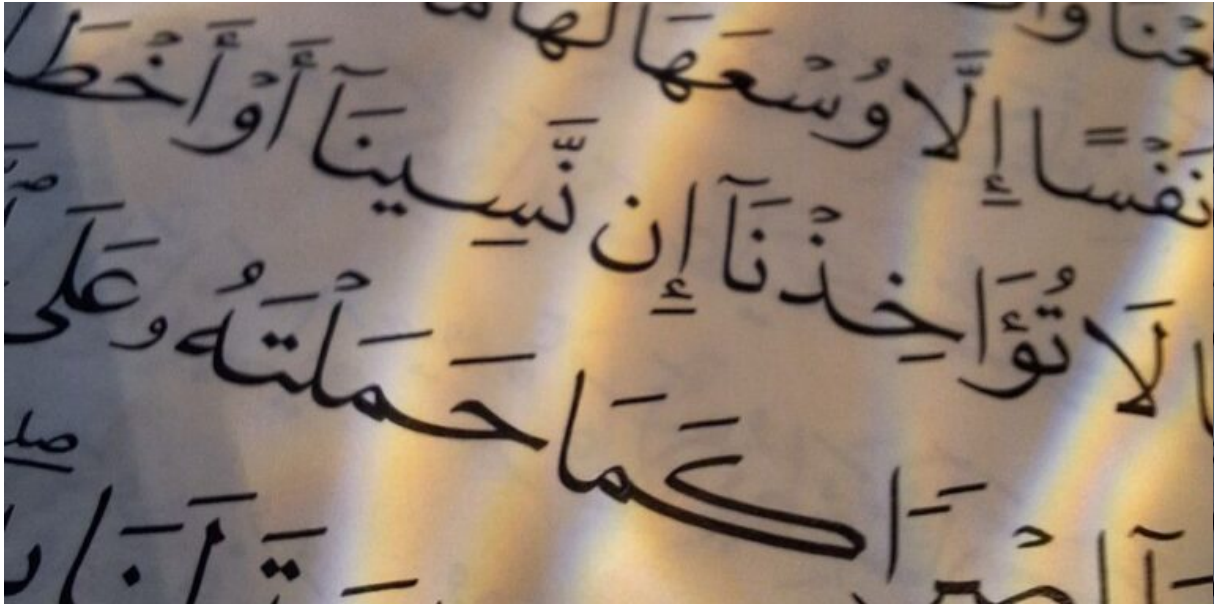 نَفْسًا إِلَّا وُسْعَهَا لَهَا
لَا تُؤَاخِذْنَآ إِن نَّسِينَآ أَوْ أَخْطَ
إِصْرًا كَمَا حَمَلْتَهُۥ عَلَى
لَنَا